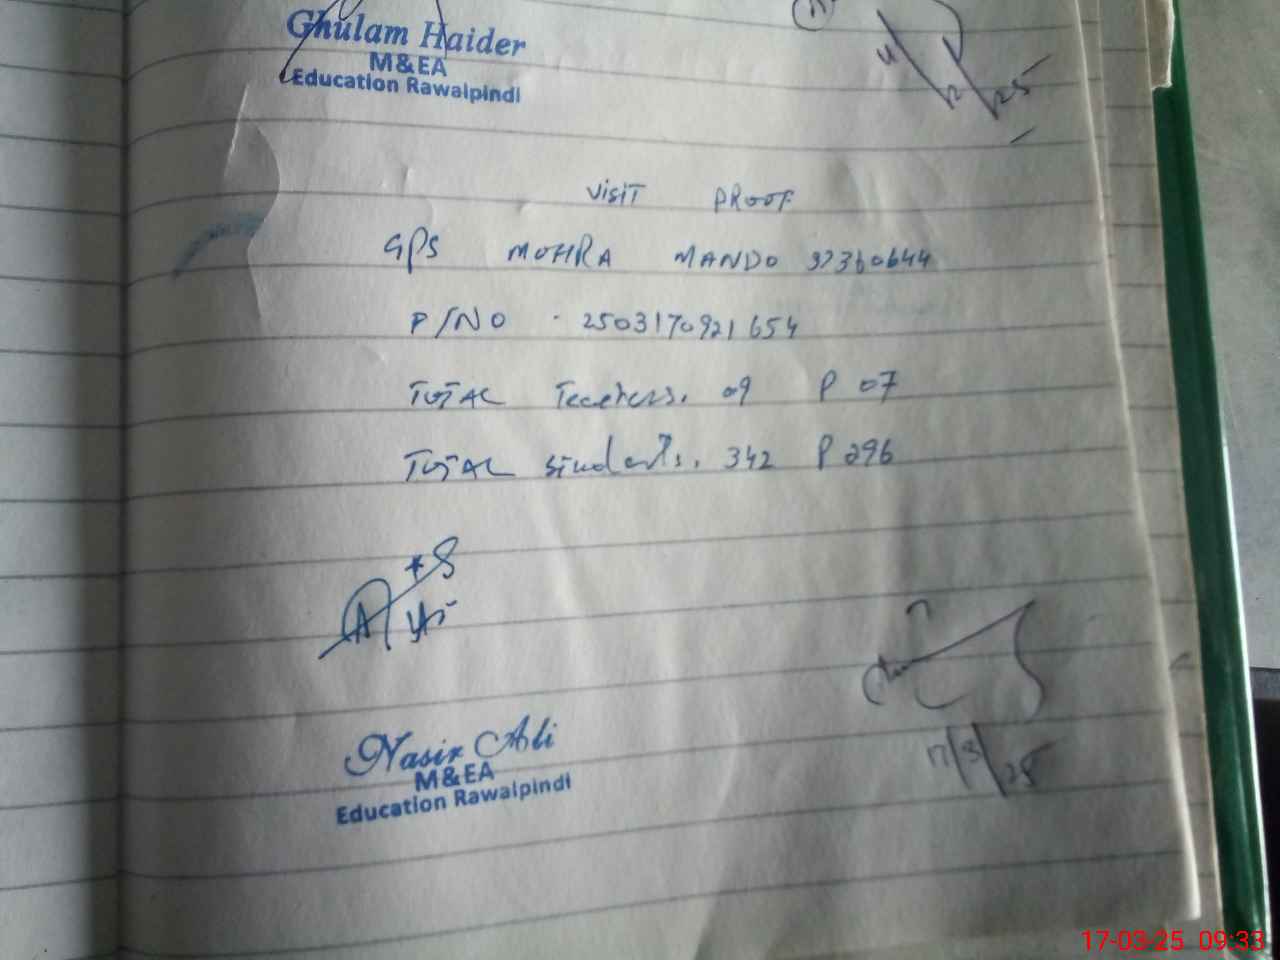 Ghulam Haider
M&EA
Education Rawalpindi
4/2/25
VISIT PROOF
GPS MOHRA MANDO 37360644
P/NO . 2503170921654
TOTAL Teachers. 09 P 07
TOTAL Students. 342 P 296
Nasir Ali
M&EA
Education Rawalpindi
17/3/25
17-03-25 09:33